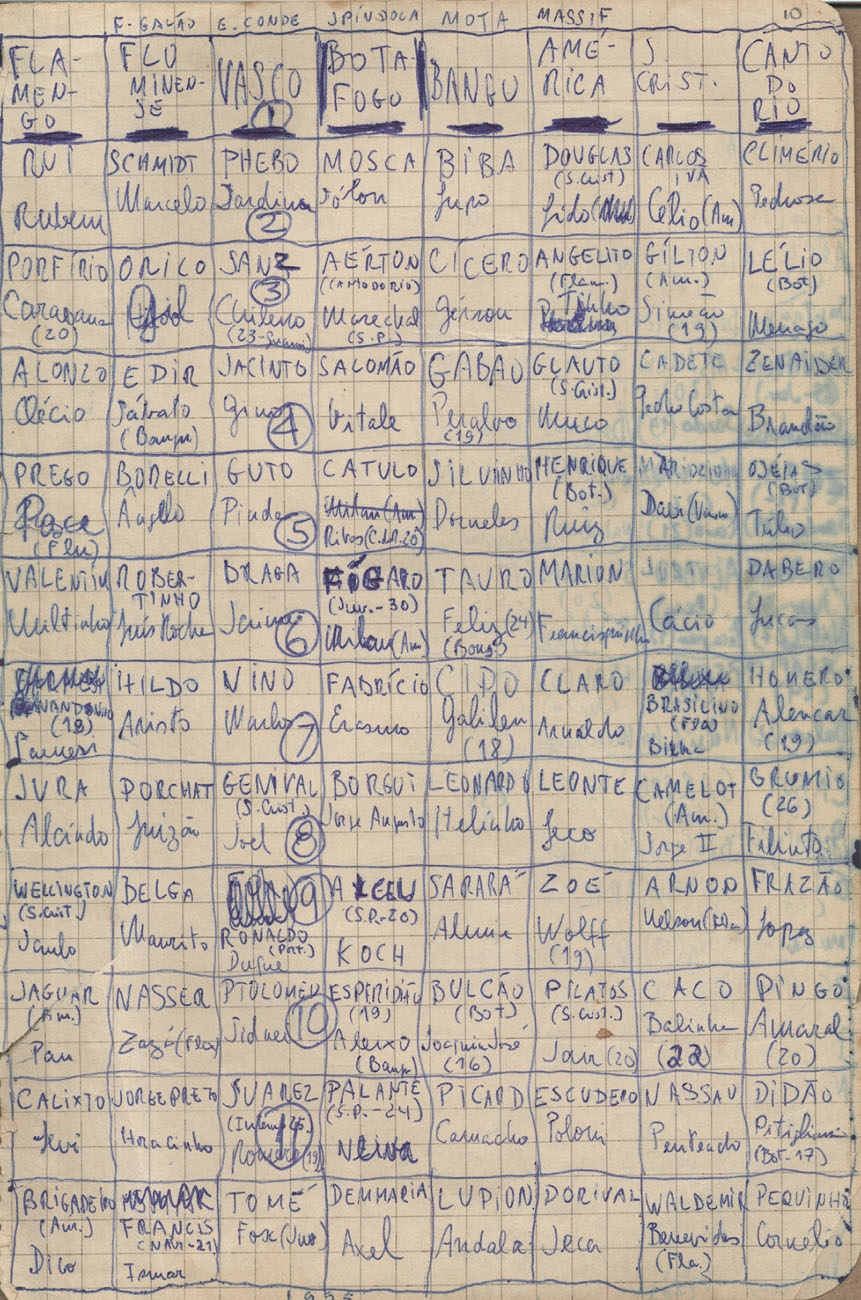 F. GALÃO G. CONDE SPÍNDOLA MOTA MASSIF 10
FLA-
MEN-
GO
FLU
MINEN-
SE
VASCO
1
BOTA-
FOGO
BANGU
AMÉ-
RICA
S.
CRIST.
CANTO
DO
RIO
RUI
Rubem
SCHMIDT
Marcelo
PHEBO
Jardina
2
MOSCA
Jólon
BIBA
Jupo
DOUGLAS
(S. Crist)
Lido
CARLOS
IVÃ
Célio (Am)
CLIMÉRIO
Pedrosa
PORFÍRIO
Caravana
(20)
ORICO
SANZ
3
Chileno
AÉRTON
(CANTODORIO)
Marechal
(S.P.)
CÍCERO
Gérson
ANGELITO
(Flam.)
Tinho
GÍLTON
(Am.)
Simeão
(19)
LÉLIO
(Bot)
ALONZO
Décio
EDIR
(Bangu)
JACINTO
4
SALOMÃO
Vitale
GABÃO
Peralvo
(19)
GLAUTO
(S. Crist.)
Muco
CADETE
Pedro Costa
Brandão
PREGO
(Flu)
BORELLI
Ângelo
GUTO
5
CATULO
SILVINHO
Dorneles
HENRIQUE
(Bot.)
Ruiz
(Bot)
Túlio
VALENTIM
ROBER-
TINHO
BRAGA
6
FÍGARO
(Juv.-30)
TAURO
Feliz (24)
MARION
Cácio
DABERO
Lucas
(18)
HILDO
Aristo
NINO
7
FABRÍCIO
Erasmo
CIDO
Galileu
(18)
CLARO
Arnaldo
BRASILINO
HOMERO
Alencar
(19)
JURA
Alcindo
PORCHAT
Juizão
GENIVAL
(S. Crist.)
Joel
8
BORGUI
Jorge Augusto
LEONARDO
Helinho
LEONTE
Jeco
CAMELOT
(Am.)
Jorge II
GRUMIO
(26)
Filinto
WELLINGTON
(S. Crist.)
BELGA
Maurito
9
RONALDO
Duque
(S.P.-20)
KOCH
SARARÁ
Almir
ZOÉ
Wolff
(19)
ARNON
Nelson (Flu)
FRAZÃO
Lopez
JAGUAR
(Am.)
Pan
NASSER
Zezé (Flu)
PTOLOMEU
Sidnei
10
ESPERIDIÃO
(19)
Aleixo
(Bangu)
BULCÃO
(Bot)
Joaquim José
(16)
PILATOS
(S. Crist.)
Jair (20)
CACO
Balinha
(22)
PINGO
Amaral
(20)
CALIXTO
Levi
JORGE PRETO
Horacinho
SUAREZ
11
PALANTE
(S.P.-24)
NEIVA
PICARD
Camacho
ESCUDERO
Poloni
NASSAU
Penteado
DIDÃO
(Bot-17)
BRIGADEIRO
(Am.)
Dico
FRANCIS
Ismar
TOMÉ
Fox (Juv)
DEMMARIA
Axel
LUPION
Andala
DORIVAL
Jeca
WALDEMIR
Benevides
(Fla.)
PEQUINHO
Cornélio